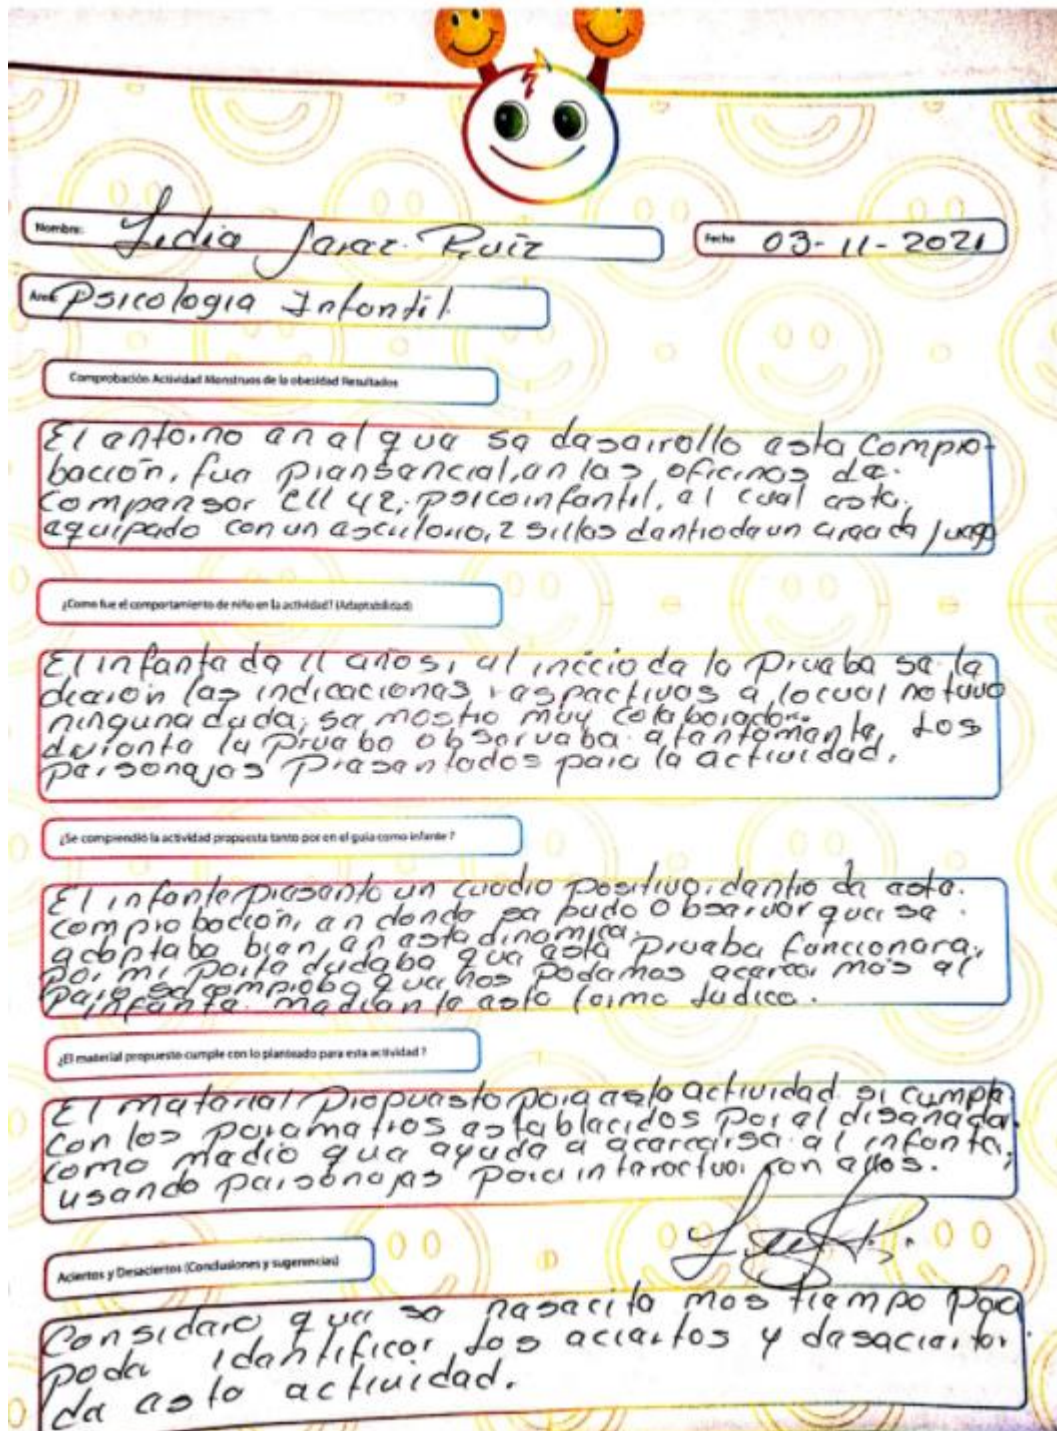 Nombre: Lidia Jerez Ruiz
Fecha 03-11-2021
Area Psicologia Infantil
Comprobación Actividad Monstruos de la obesidad Resultados
El entorno en el que se desarrollo esta compro-
bacción, fue presencial, en las oficinas de
Compensar Cll 42, psicoinfantil, el cual esta
equipado con un escritorio, 2 sillas dentro de un area de juego
¿Como fue el comportamiento de niño en la actividad? (Adaptabilidad)
El infante de 11 años, al inicio de la prueba se le
dieron las indicaciones respectivas a lo cual no tuvo
ninguna duda, se mostro muy colaborador.
durante la prueba observaba atentamente, Los
personajes presentados para la actividad.
¿Se comprendió la actividad propuesta tanto por en el guia como infante ?
El infante presento un cuadro positivo, dentro de esta
comprobacción, en donde se pudo observar que se
adaptaba bien, en esta dinamica.
por mi parte dudaba que esta prueba funcionara,
pero se comprobo que nos podemos acercar más al
infante. mediante esta forma ludica.
¿El material propuesto cumple con lo planteado para esta actividad ?
El material propuesto para esta actividad si cumple
con los parametros establecidos por el diseñador.
como medio que ayuda a acercarse al infante,
usando personajes para interactuar con ellos.
Aciertos y Desaciertos (Conclusiones y sugerencias)
Considero que se nesecita mas tiempo para
poder identificar los aciertos y desaciertos
de esta actividad.